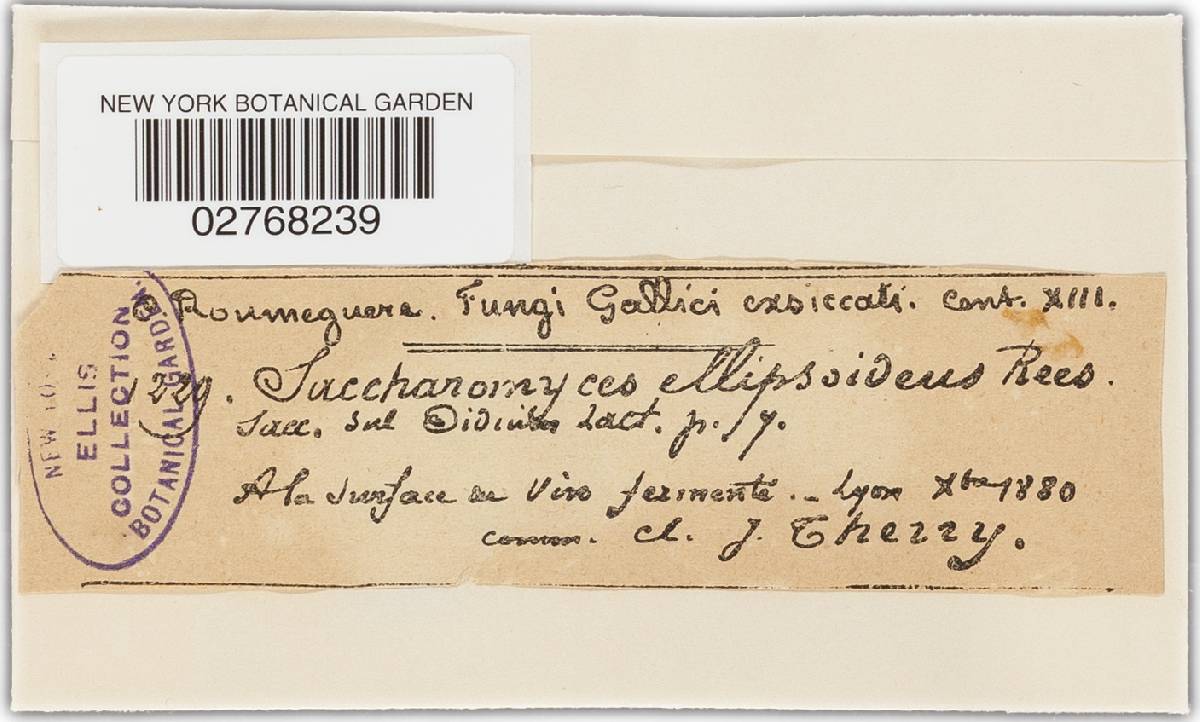 NEW YORK BOTANICAL GARDEN
02768239
C. Roumeguere. Fungi Gallici exsiccati. Cent. XIII.
1229. Saccharomyces ellipsoideus Rees.
Sacc. sul Lact. p. 7.
A la surface du Vin fermenté. - Lyon Xbre 1880
comm. cl. J. Therry.
NEW YO
ELLIS
COLLECTION
BOTANICAL GARDEN.